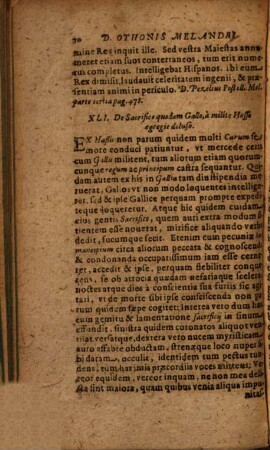 70 D. OTHONIS MELANDRI
mine Rex inquit ille. Sed vestra Maiestas annu-
meret etiam suos conterraneos, tum erit nume-
rus completus. Intelligebat Hispanos. ibi eum
Rex dimisit, laudavit celeritatem ingenii, & præ-
sentiam animi in periculo. D. Pezelius Postell. Mel.
parte tertia pag. 478.
XLI. De Sacrifico quodam Gallo, à milite Hasso
egregiè deluso.
EX Hassis non parum quidem multi Curum se
more conduci patiuntur, ut mercede cum
cum Gallis militent, tum aliorum etiam quorum-
cunque regum ac principum castra sequantur. Qui-
dam autem ex his in Gallia tam diu stipendia me
ruerat, Gallos ut non modo loquentes intellige-
ret, sed & ipse Gallicè perquam promptè expedi-
teque loqueretur. Atque hic quidem cuidam
eius gentis Sacrifico, quem auri extra modum si-
tientem esse nouerat, mirificè aliquando verba
dedit, fucumque fecit. Etenim cum
circa aliorum peccata & cognoscenda
& condonanda occupatissimum iam esse cerne-
ret, accedit & ipse, perquam debiliter congu-
ens, se ob atrocia quædam nefariaque scelera
noctes atque dies à conscientia sua furiis sic agi-
tari, ut de morte sibi ipse consciscenda non pa-
rum quidem sæpe cogitet; Interea vero dum hæc
gemitu & lamentatione sacrifici in sinum
effundit, sinistra quidem coronatos aliquot ven-
tilat versatque, dextera vero nucem myristicam
auro affabrè obductam, strenæque loco nuper
sibi daram, occulit, identidem tum pectus tun-
dens, tum hac imis præcordiis voces mittens; Ve-
reor equidem, vereor inquam, ne non mea de-
licta sint maiora, quam quibus venia aliqua impu-
nitas